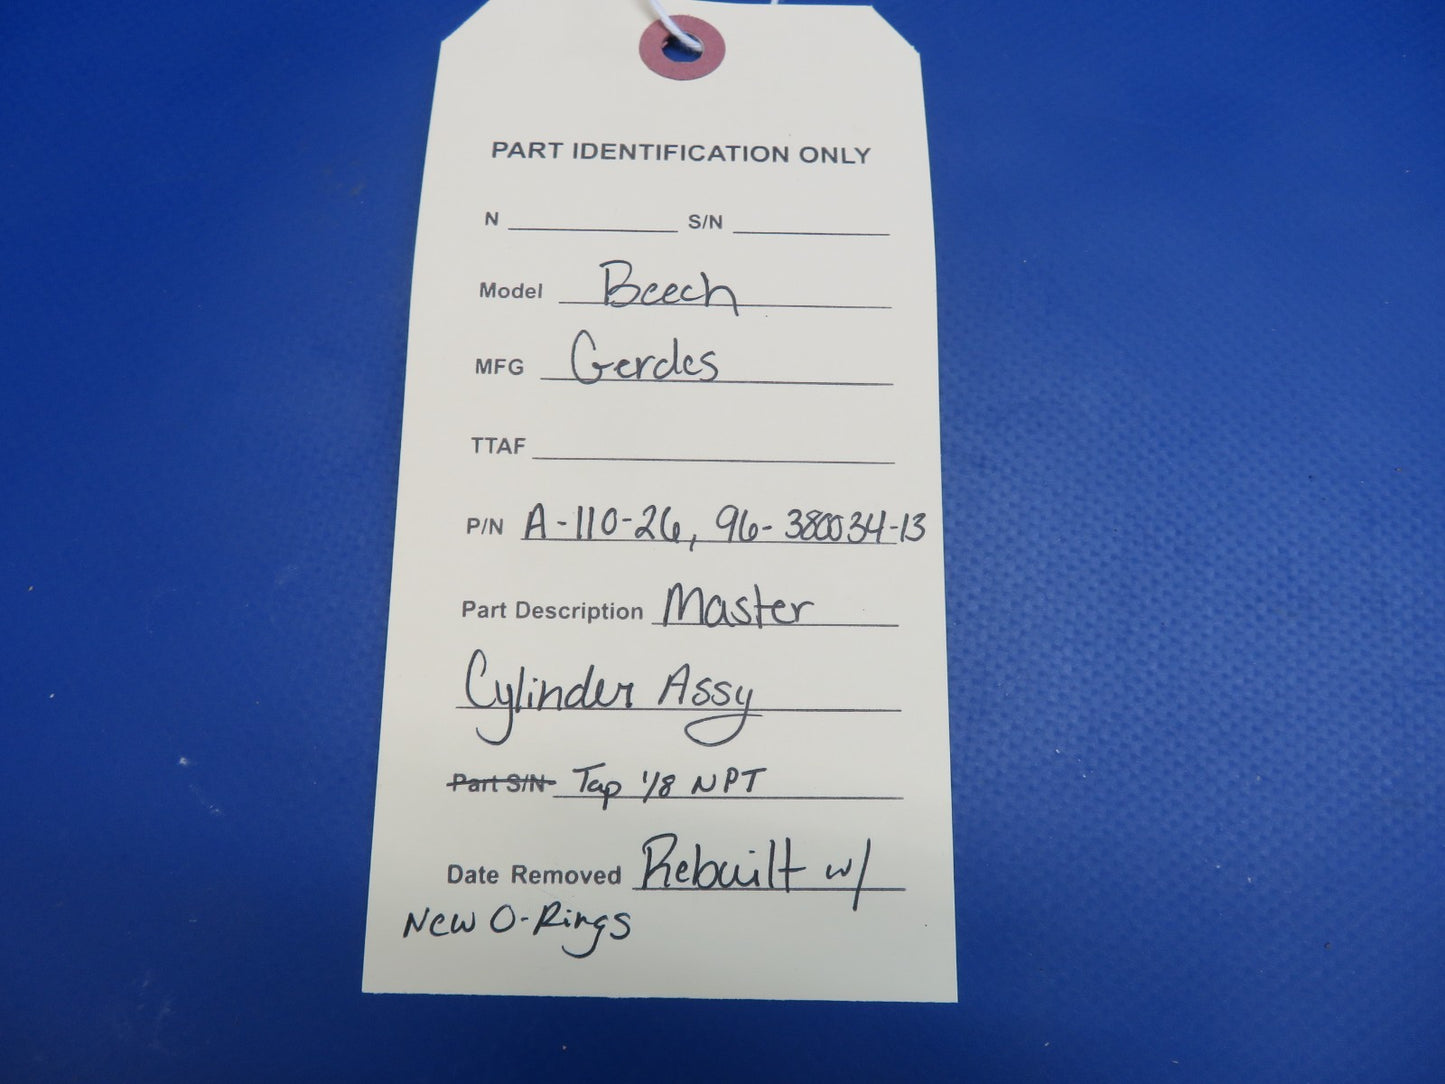 PART IDENTIFICATION ONLY
N S/N
Model Beech
MFG Gerdes
TTAF
P/N A-110-26, 96-380034-13
Part Description Master
Cylinder Assy
Part S/N Tap 1/8 NPT
Date Removed Rebuilt w/
New O-Rings